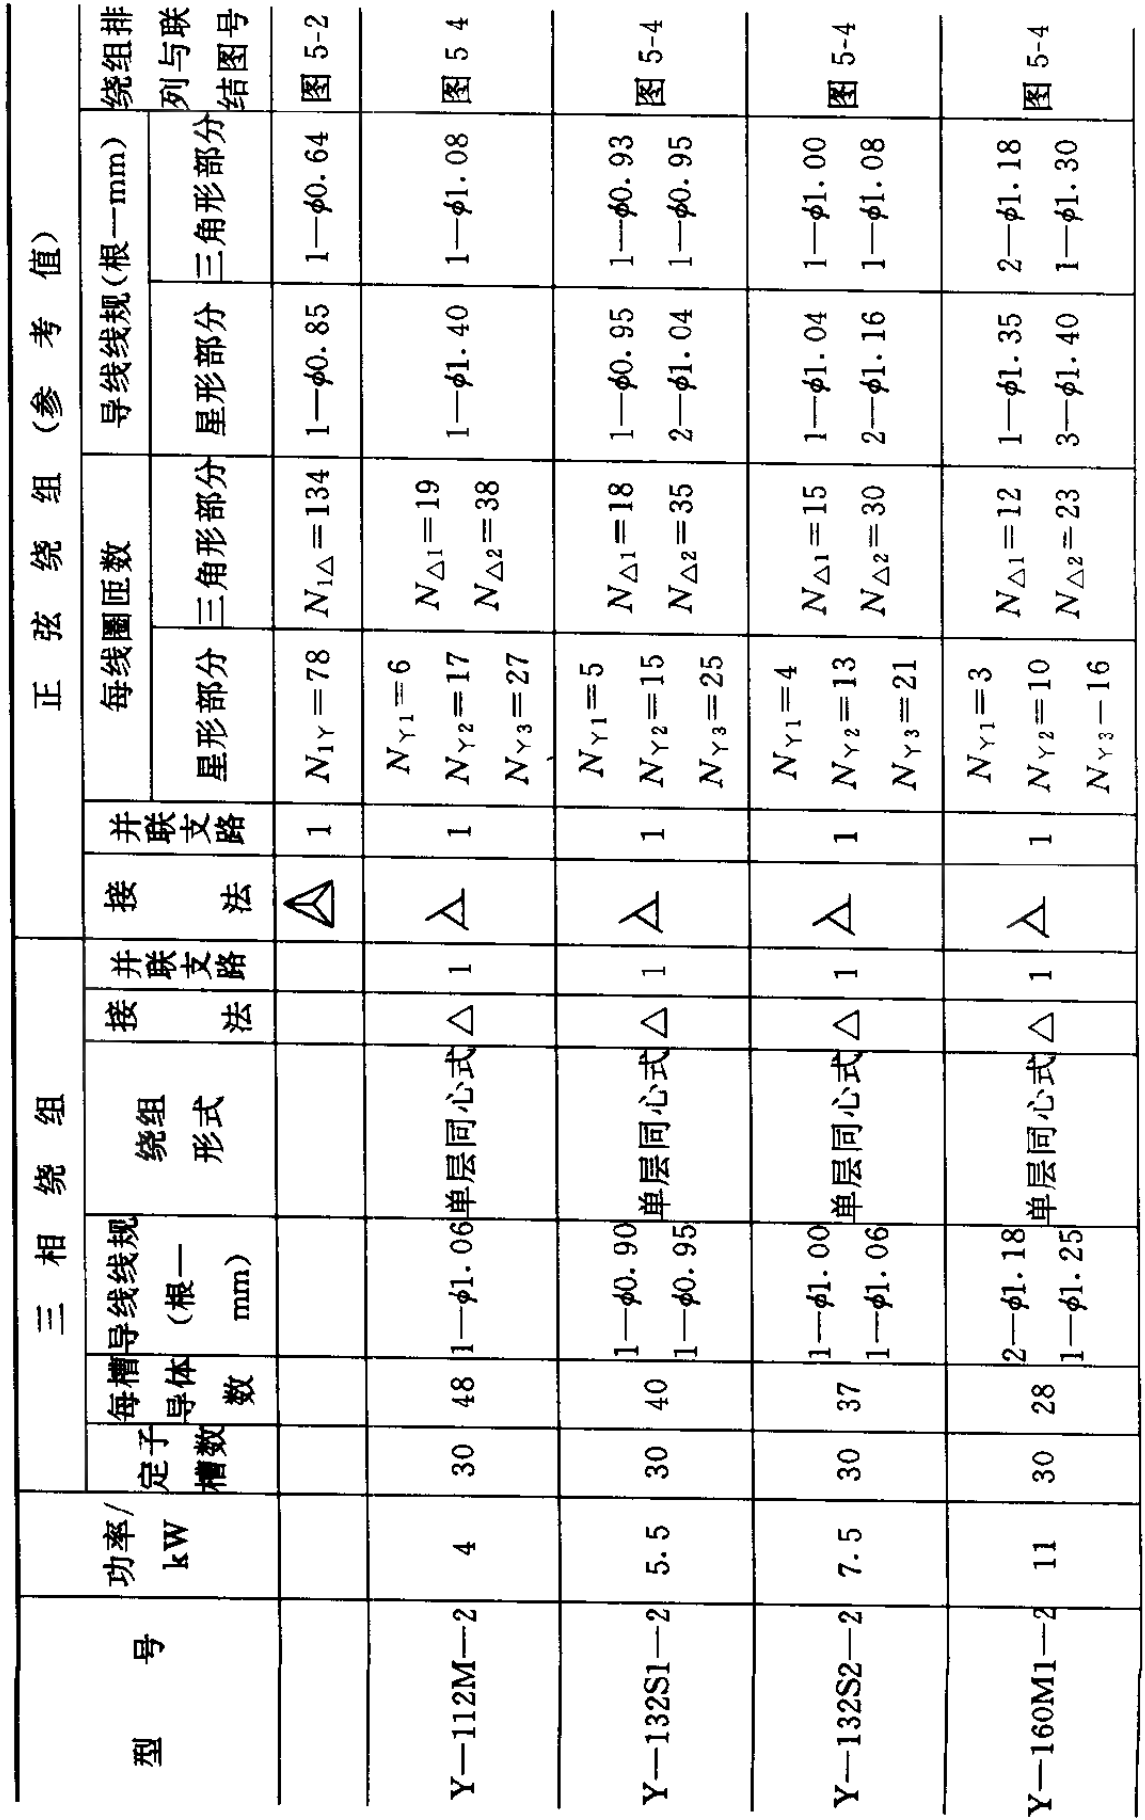 型号
功率/kW
三相绕组
正弦绕组（参考值）
定子槽数
每槽导体数
导线线规（根—mm）
绕组形式
接法
并联支路
接法
并联支路
每线圈匝数
导线线规(根—mm)
绕组排列与联结图号
星形部分
三角形部分
星形部分
三角形部分
1
N1Y=78
N1△=134
1—ϕ0.85
1—ϕ0.64
图 5-2
Y—112M—2
4
30
48
1—ϕ1.06
单层同心式
△
1
1
NY1=6
NY2=17
NY3=27
N△1=19
N△2=38
1—ϕ1.40
1—ϕ1.08
图 5 4
Y—132S1—2
5.5
30
40
1—ϕ0.90
1—ϕ0.95
单层同心式
△
1
1
NY1=5
NY2=15
NY3=25
N△1=18
N△2=35
1—ϕ0.95
2—ϕ1.04
1—ϕ0.93
1—ϕ0.95
图 5-4
Y—132S2—2
7.5
30
37
1—ϕ1.00
1—ϕ1.06
单层同心式
△
1
1
NY1=4
NY2=13
NY3=21
N△1=15
N△2=30
1—ϕ1.04
2—ϕ1.16
1—ϕ1.00
1—ϕ1.08
图 5-4
Y—160M1—2
11
30
28
2—ϕ1.18
1—ϕ1.25
单层同心式
△
1
1
NY1=3
NY2=10
NY3—16
N△1=12
N△2=23
1—ϕ1.35
3—ϕ1.40
2—ϕ1.18
1—ϕ1.30
图 5-4